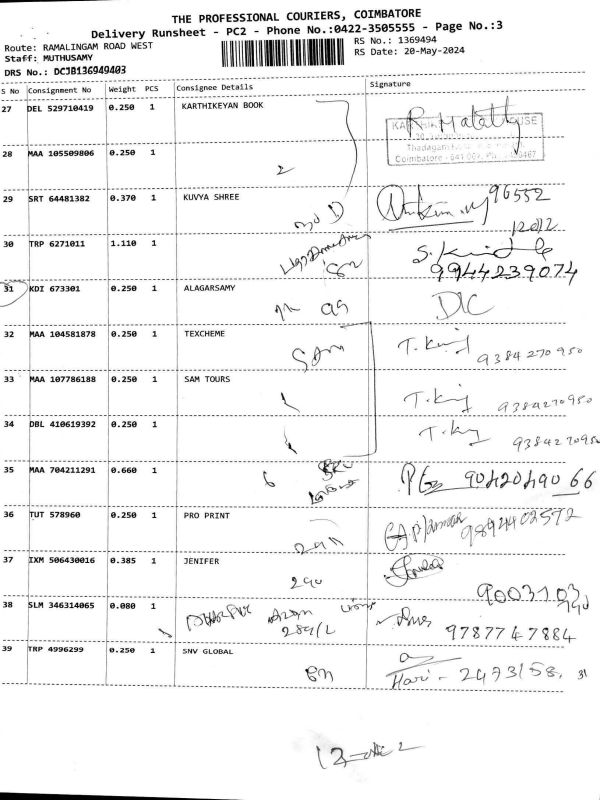 THE PROFESSIONAL COURIERS, COIMBATORE
Delivery Runsheet - PC2 - Phone No.:0422-3505555 - Page No.:3
Route: RAMALINGAM ROAD WEST
RS No.: 1369494
Staff: MUTHUSAMY
RS Date: 20-May-2024
DRS No.: DCJB136949403
S No Consignment No Weight PCS Consignee Details Signature
27 DEL 529710419 0.250 1 KARTHIKEYAN BOOK
28 MAA 105509806 0.250 1
Coimbatore - 641
29 SRT 64481382 0.370 1 KUVYA SHREE
96552
30 TRP 6271011 1.110 1
9944239074
31 KDI 673301 0.250 1 ALAGARSAMY
DLC
32 MAA 104581878 0.250 1 TEXCHEME
9384270950
33 MAA 107786188 0.250 1 SAM TOURS
9384270950
34 DBL 410619392 0.250 1
9384270950
35 MAA 704211291 0.660 1
9042049066
36 TUT 578960 0.250 1 PRO PRINT
9894402572
37 IXM 506430016 0.385 1 JENIFER
290
9003103
38 SLM 346314065 0.080 1
289/2
9787747884
39 TRP 4996299 0.250 1 SNV GLOBAL
Hari - 2473158, 31